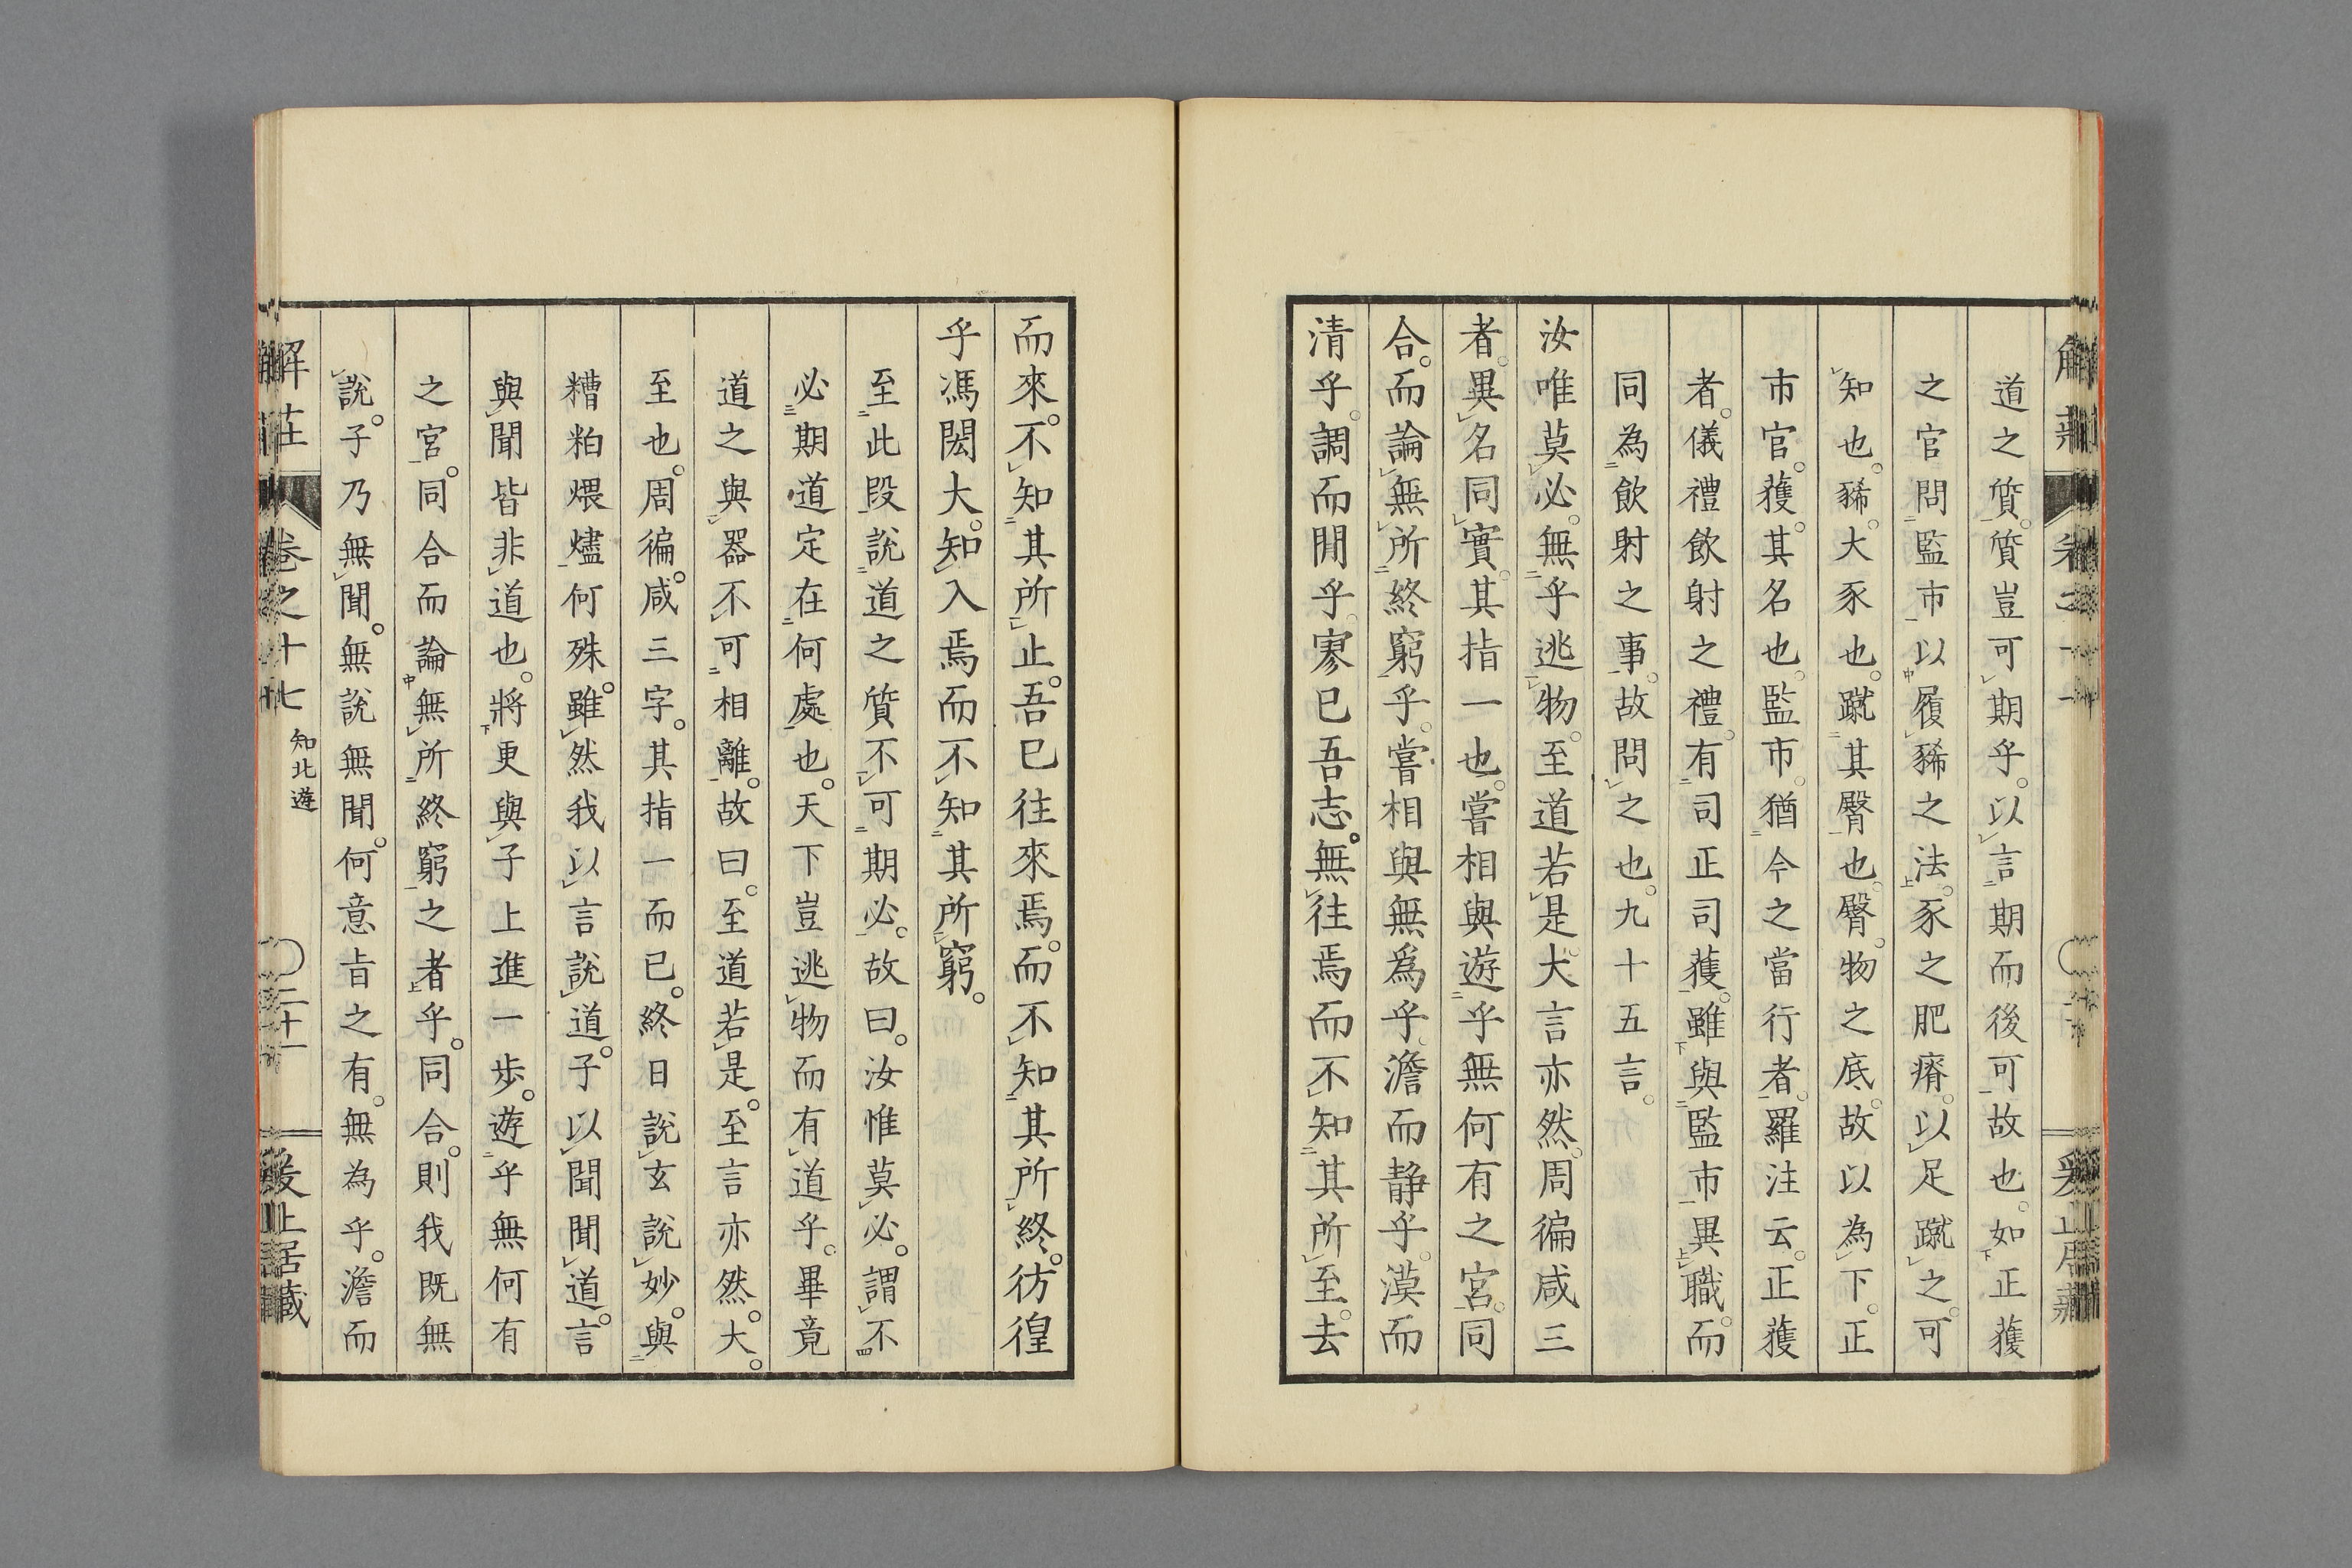 道之質。質豈可期乎。以言期而後可故也。如正獲
之官問監市以履豨之法。豕之肥瘠。以足蹴之。可
知也。豨。大豕也。蹴其臀也。臀。物之底。故以為下。正
市官。獲。其名也。監市。猶今之當行者。羅注云。正獲
者。儀禮飲射之禮。有司正司獲。雖與監市異職。而
同為飲射之事。故問之也。九十五言。
汝唯莫必。無乎逃物。至道若是。大言亦然。周徧咸三
者。異名同實。其指一也。嘗相與遊乎無何有之宮。同
合。而論無所終窮乎。嘗相與無為乎。澹而静乎。漠而
清乎。調而閒乎。寥已吾志。無往焉而不知其所至。去
而來。不知其所止。吾已往來焉。而不知其所終。彷徨
乎馮閎大。知入焉而不知其所窮。
至此段說道之質不可期必。故曰。汝惟莫必。謂不
必期道定在何處也。天下豈逃物而有道乎。畢竟
道之與器不可相離。故曰。至道若是。至言亦然。大。
至也。周徧。咸三字。其指一而已。終日說玄說妙。與
糟粕煨燼何殊。雖然我以言說道。子以聞聞道。言
與聞皆非道也。將更與子上進一步。遊乎無何有
之宮。同合而論無所終窮之者乎。同合。則我既無
說。子乃無聞。無說無聞。何意旨之有。無為乎。澹而
解莊
卷之十七
知北遊
二十一
爰止居藏